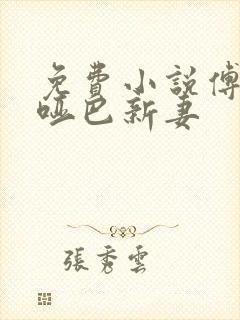 免費小說傅
啞巴新妻
張秀雲